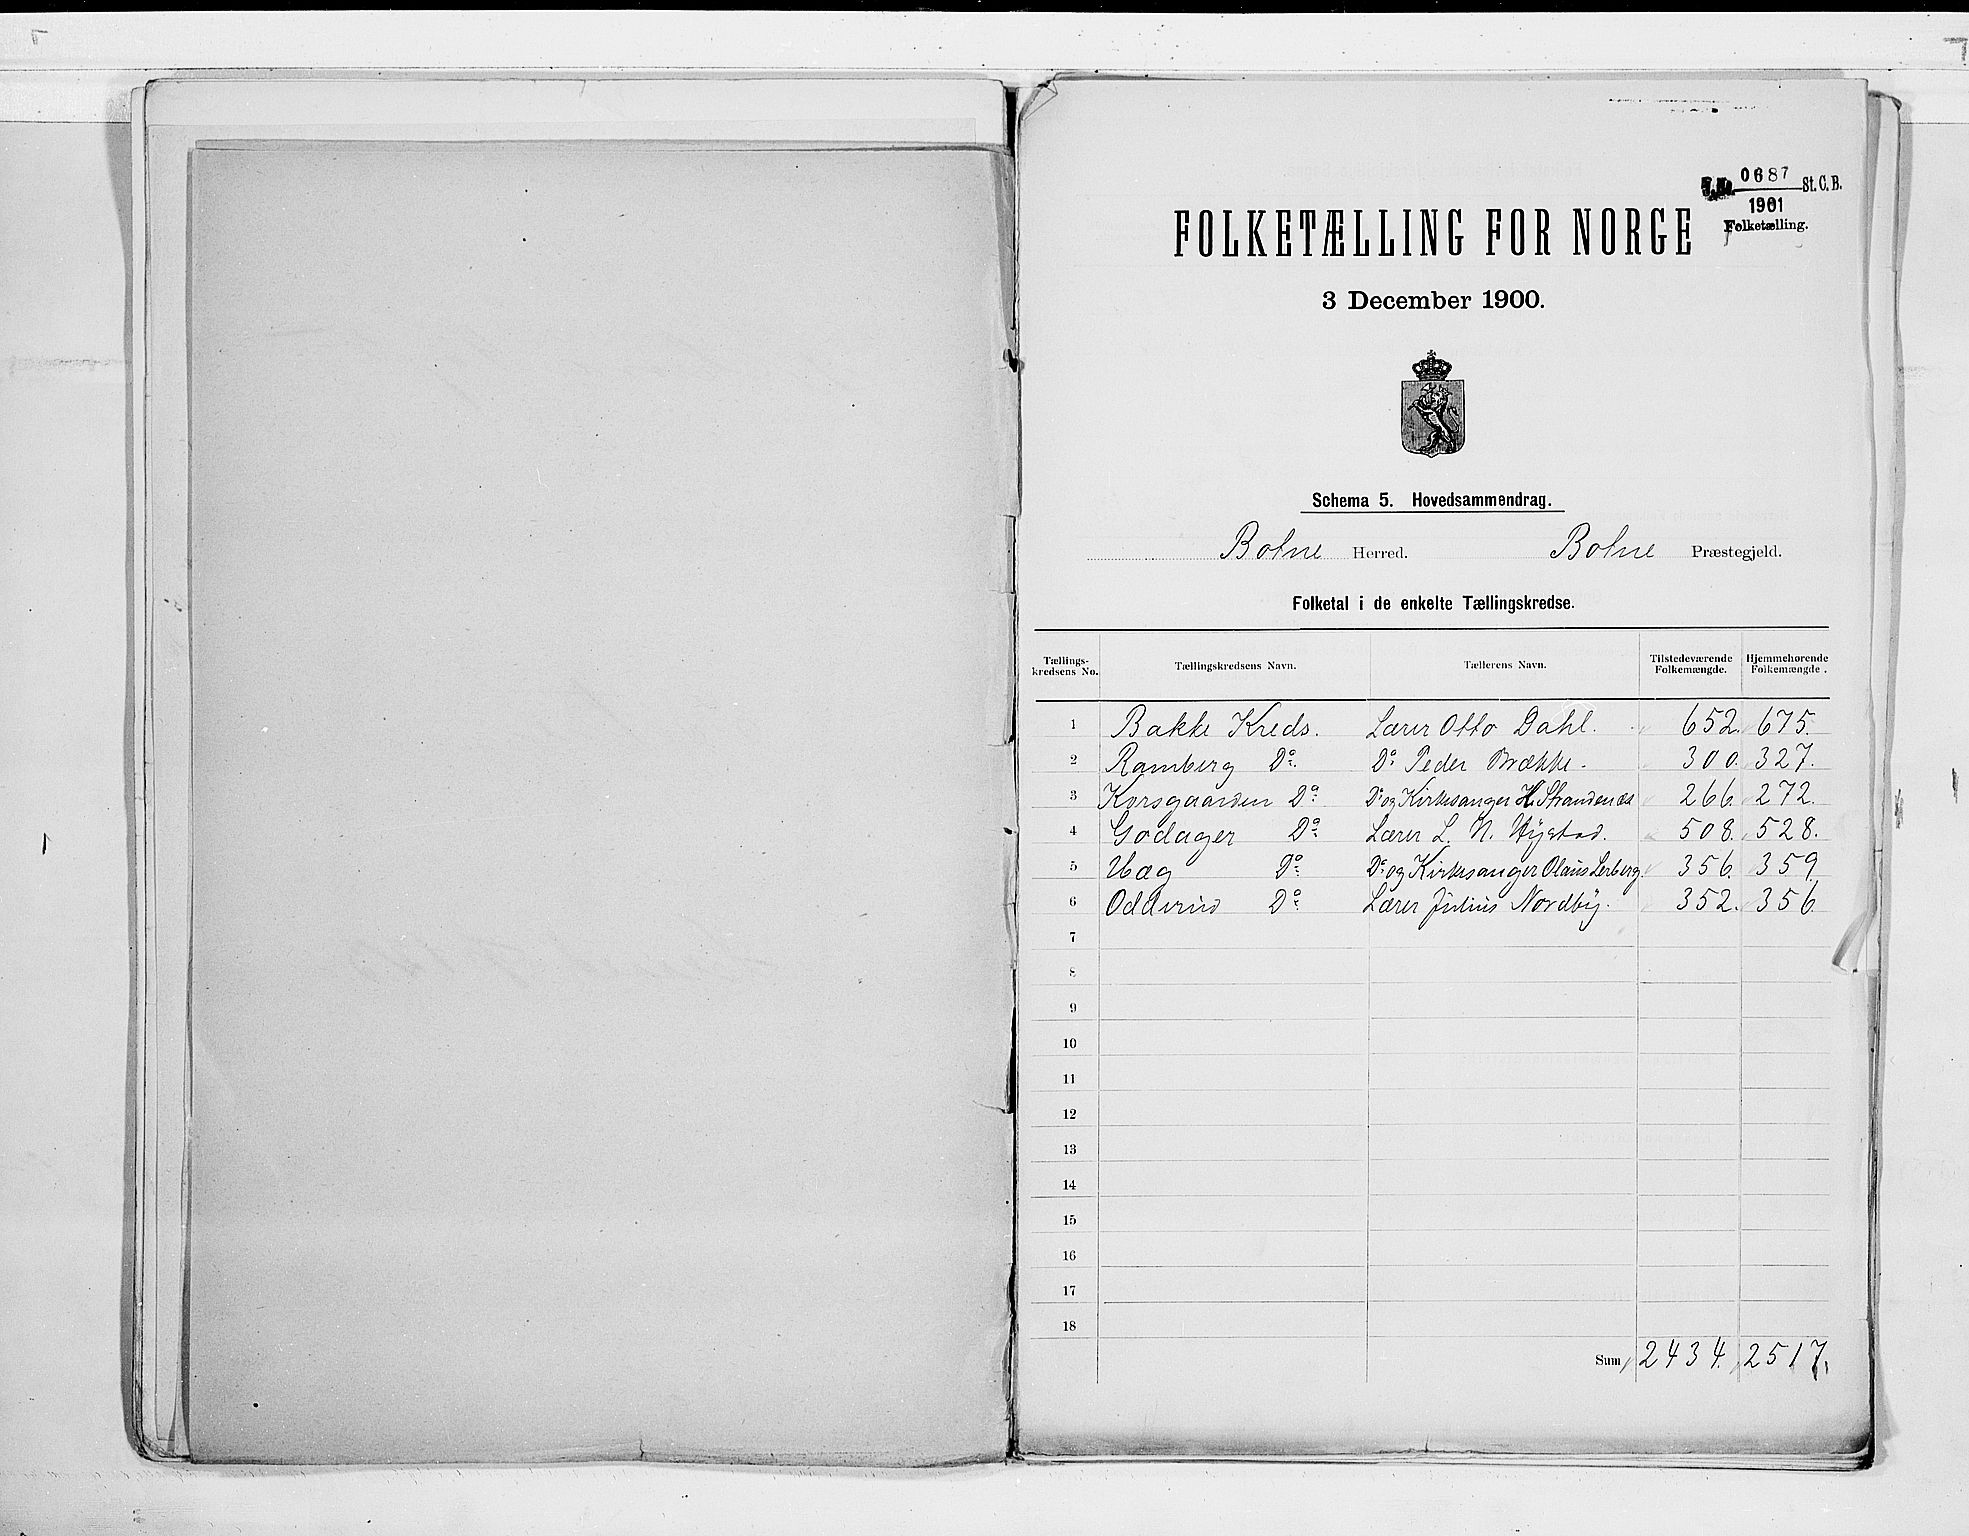 0687 St. C. B.
1901
Folketælling.
FOLKETÆLLING FOR NORGE
3 December 1900.
Schema 5. Hovedsammendrag.
Botne Herred. Botne Præstegjeld.
Folketal i de enkelte Tællingskredse.
Tællings-kredsens No. Tællingskredsens Navn. Tællerens Navn. Tilstedeværende Folkemængde. Hjemmehørende Folkemængde.
1 Bakke Kreds. Lærer Otto Dahl. 652. 675.
2 Ramberg Do. Do. Peder Brække. 300. 327.
3 Korsgaarden Do. Do. og Kirkesanger H. Strandenæs 266. 272.
4 Godager Do. Lærer L. N. 508. 528.
5 Hæg Do. Do. og Kirkesanger Olaus Lerberg. 356. 359
6 Odderud Do. Lærer Julius Nordby. 352. 356.
7
8
9
10
11
12
13
14
15
16
17
18
Sum 2434. 2517.